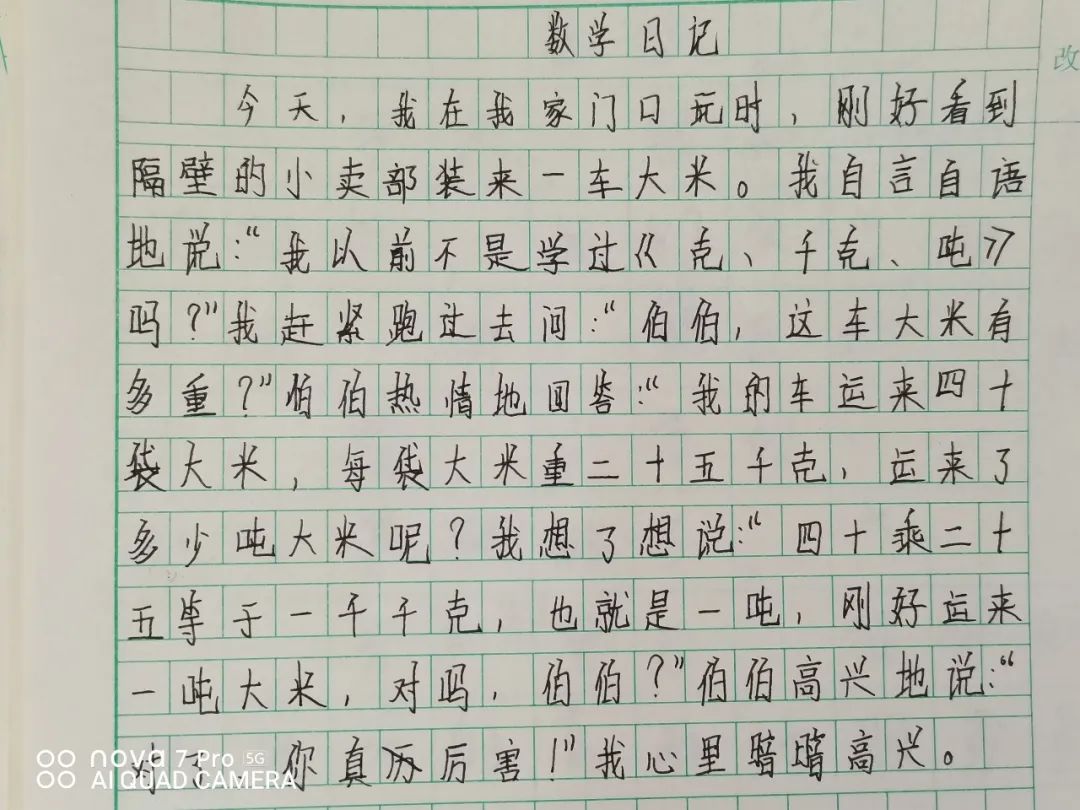 数学日记
改
今天，我在我家门口玩时，刚好看到
隔壁的小卖部装来一车大米。我自言自语
地说：“我以前不是学过《克、千克、吨》
吗？”我赶紧跑过去问：“伯伯，这车大米有
多重？”伯伯热情地回答：“我的车运来四十
袋大米，每袋大米重二十五千克，运来了
多少吨大米呢？我想了想说：“四十乘二十
五等于一千千克，也就是一吨，刚好运来
一吨大米，对吗，伯伯？”伯伯高兴地说：“
对了，你真厉害！”我心里暗暗高兴。
nova 7 Pro 5G
AI QUAD CAMERA